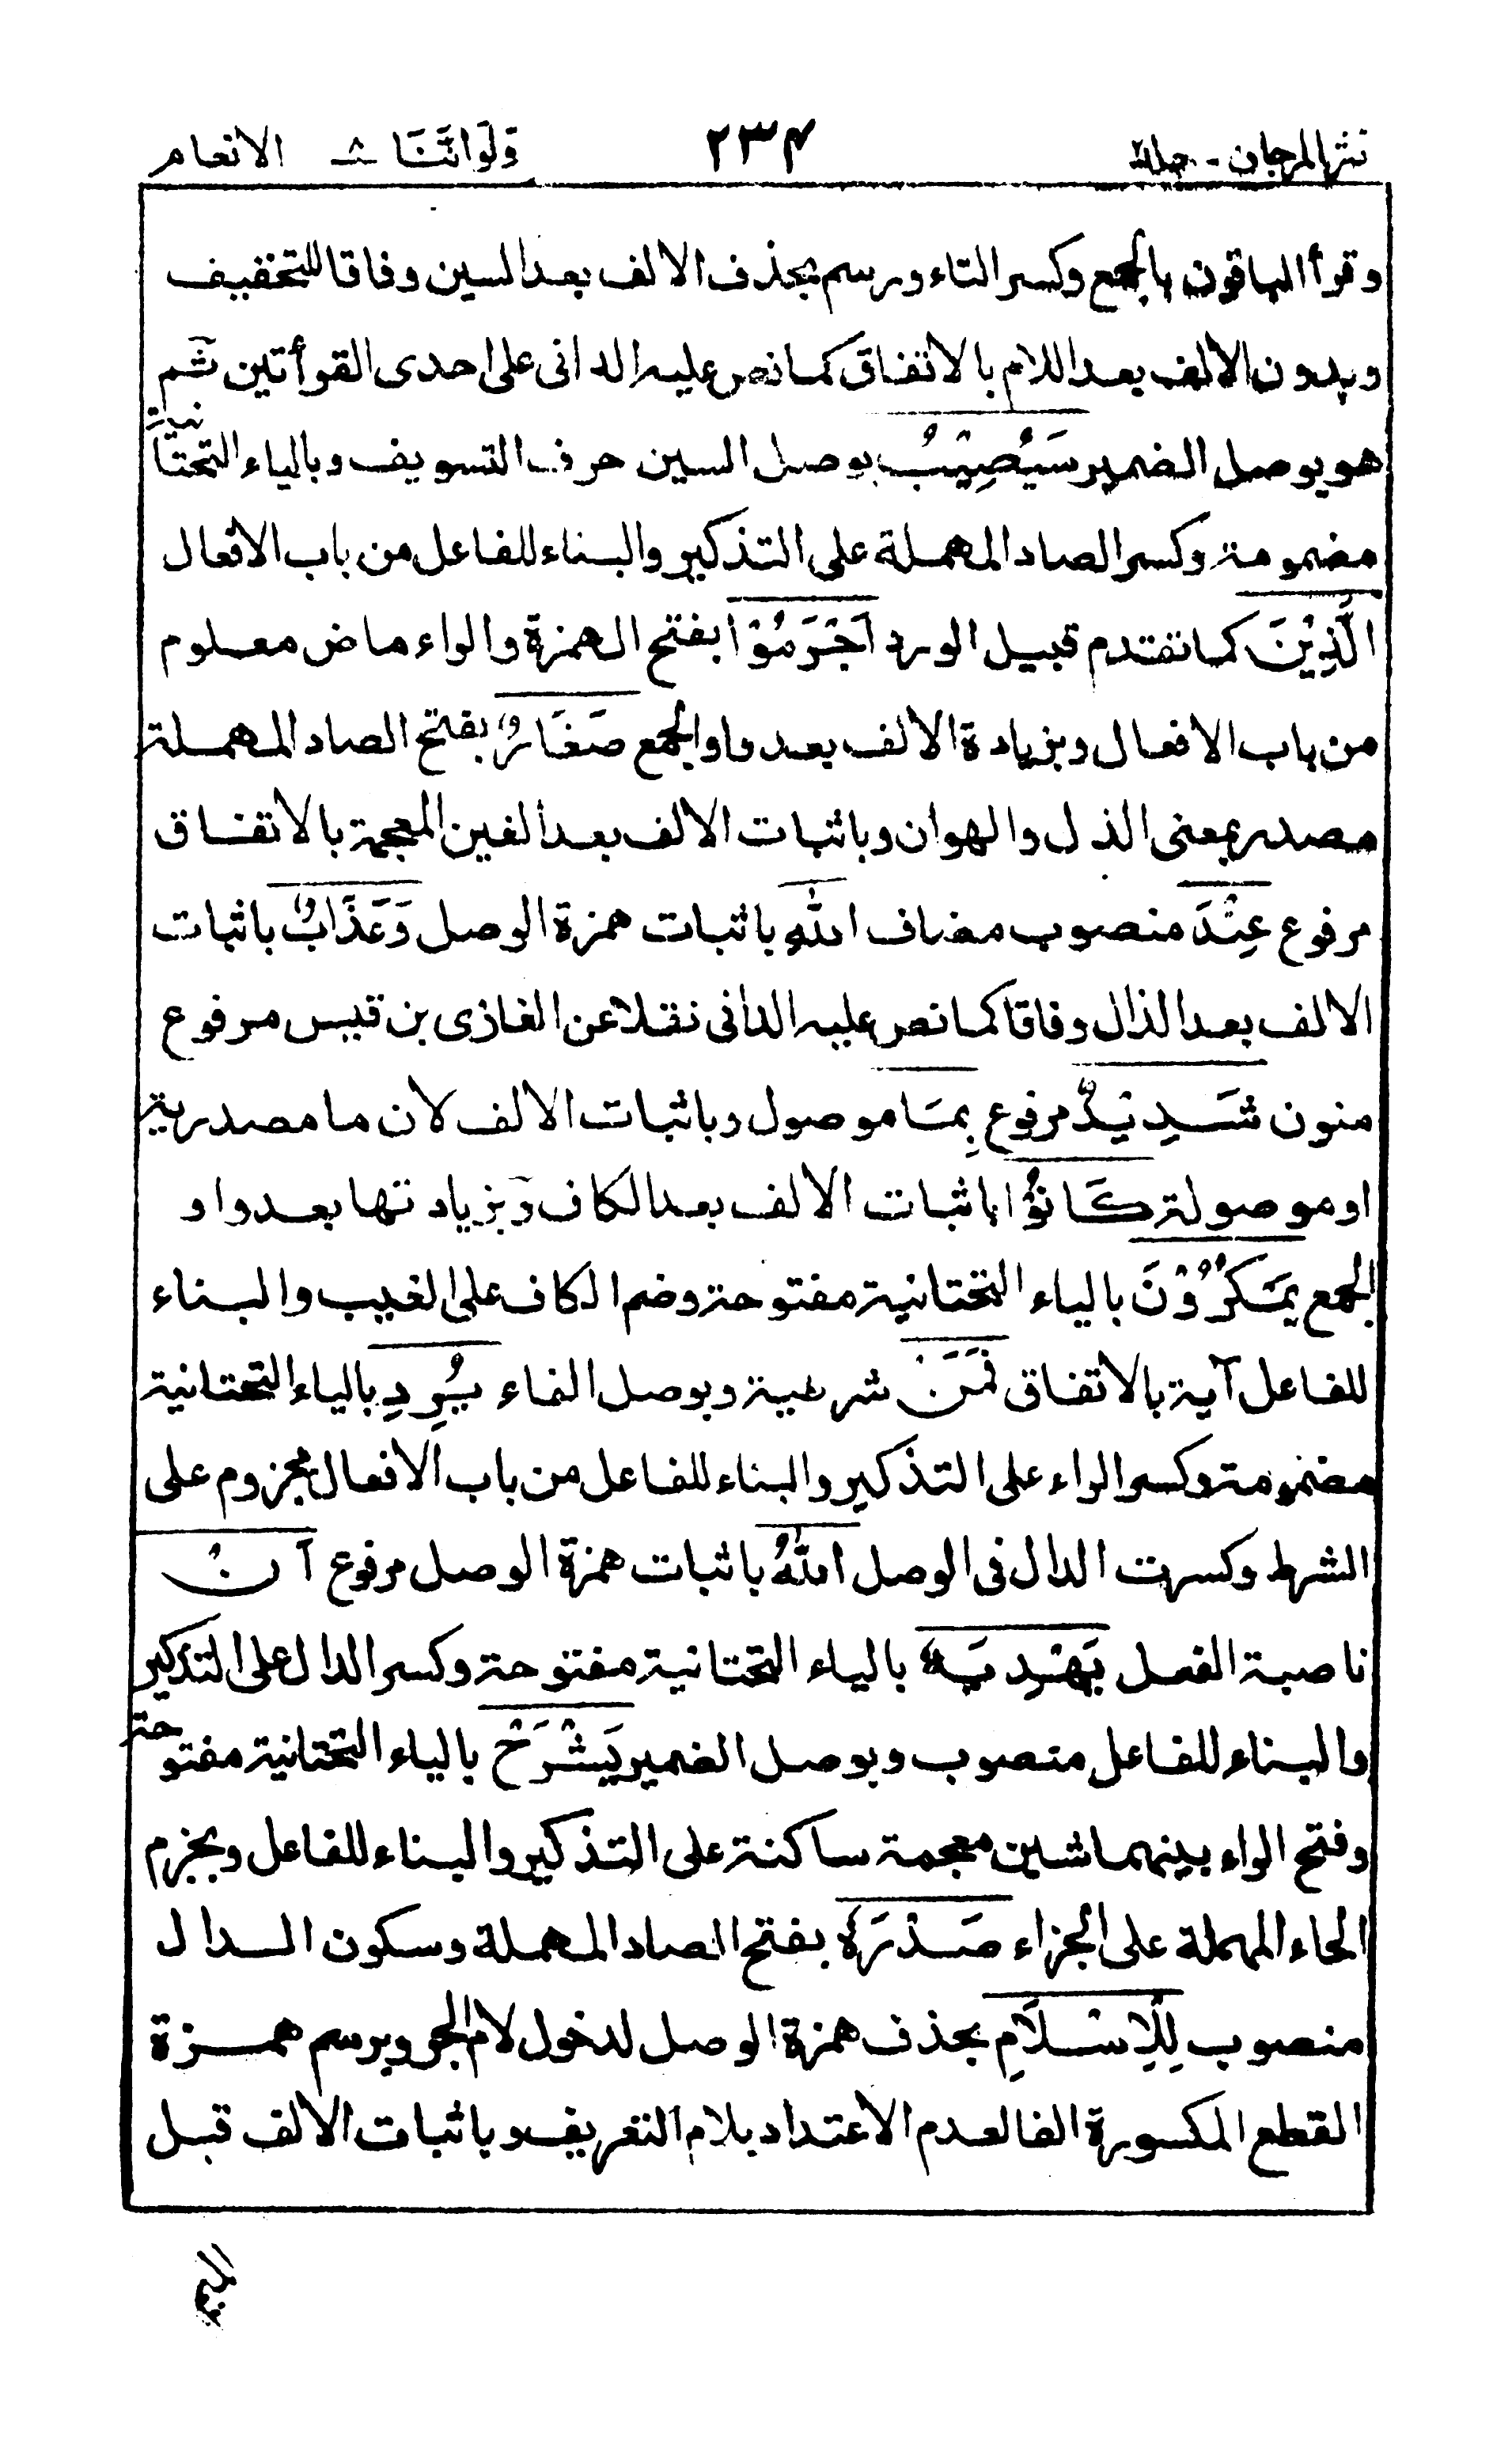 نثر المرجان - جلد٢ ٢٣٤ وَلَوْ اَنَّنَا ٨ الانعام
وقرأ الباقون بالجمع وكسر التاء ورسم بحذف الالف بعد السين وفاقا للتخفيف
وبدون الالف بعد اللام بالاتفاق كما نص عليه الدانى على احدى القرأتين ثم
هو بوصل الضمير سَيُصِيْبُ بوصل السين حرف التسويف وبالياء التحتانية
مضمومة وكسر الصاد المهملة على التذكير والبناء للفاعل من باب الافعال
الَّذِيْنَ كما تقدم قبيل الورد اَجْرَمُوْا بفتح الهمزة والراء ماض معلوم
من باب الافعال وبزيادة الالف بعد واو الجمع صَغَارٌ بفتح الصاد المهملة
مصدر بمعنى الذل والهوان وباثبات الالف بعد الغين المعجمة بالاتفاق
مرفوع عِنْدَ منصوب مضاف اللّٰهِ باثبات همزة الوصل وَعَذَابٌ باثبات
الالف بعد الذال وفاقا كما نص عليه الدانى نقلا عن الغازى بن قيس مرفوع
منون شَدِيْدٌ مرفوع بِمَا موصول وباثبات الالف لان ما مصدرية
او موصولة كَانُوْا باثبات الالف بعد الكاف وبزيادتها بعد واو
الجمع يَمْكُرُوْنَ بالياء التحتانية مفتوحة وضم الكاف على الغيب والبناء
للفاعل آية بالاتفاق فَمَنْ شرعية وبوصل الفاء يُرِدِ بالياء التحتانية
مضمومة وكسر الراء على التذكير والبناء للفاعل من باب الافعال مجزوم على
الشرط وكسرت الدال فى الوصل اللّٰهُ باثبات همزة الوصل مرفوع اَنْ
ناصبة الفعل يَهْدِيَهٗ بالياء التحتانية مفتوحة وكسر الدال على التذكير
والبناء للفاعل منصوب وبوصل الضمير يَشْرَحْ بالياء التحتانية مفتوحة
وفتح الراء بينهما شين معجمة ساكنة على التذكير والبناء للفاعل وبجزم
الحاء المهملة على الجزاء صَدْرَهٗ بفتح الصاد المهملة وسكون الدال
منصوب لِلْاِسْلَامِ بحذف همزة الوصل لدخول لام الجر وبرسم همزة
القطع المكسورة الفا لعدم الاعتداد بلام التعريف وباثبات الالف قبل
الميم